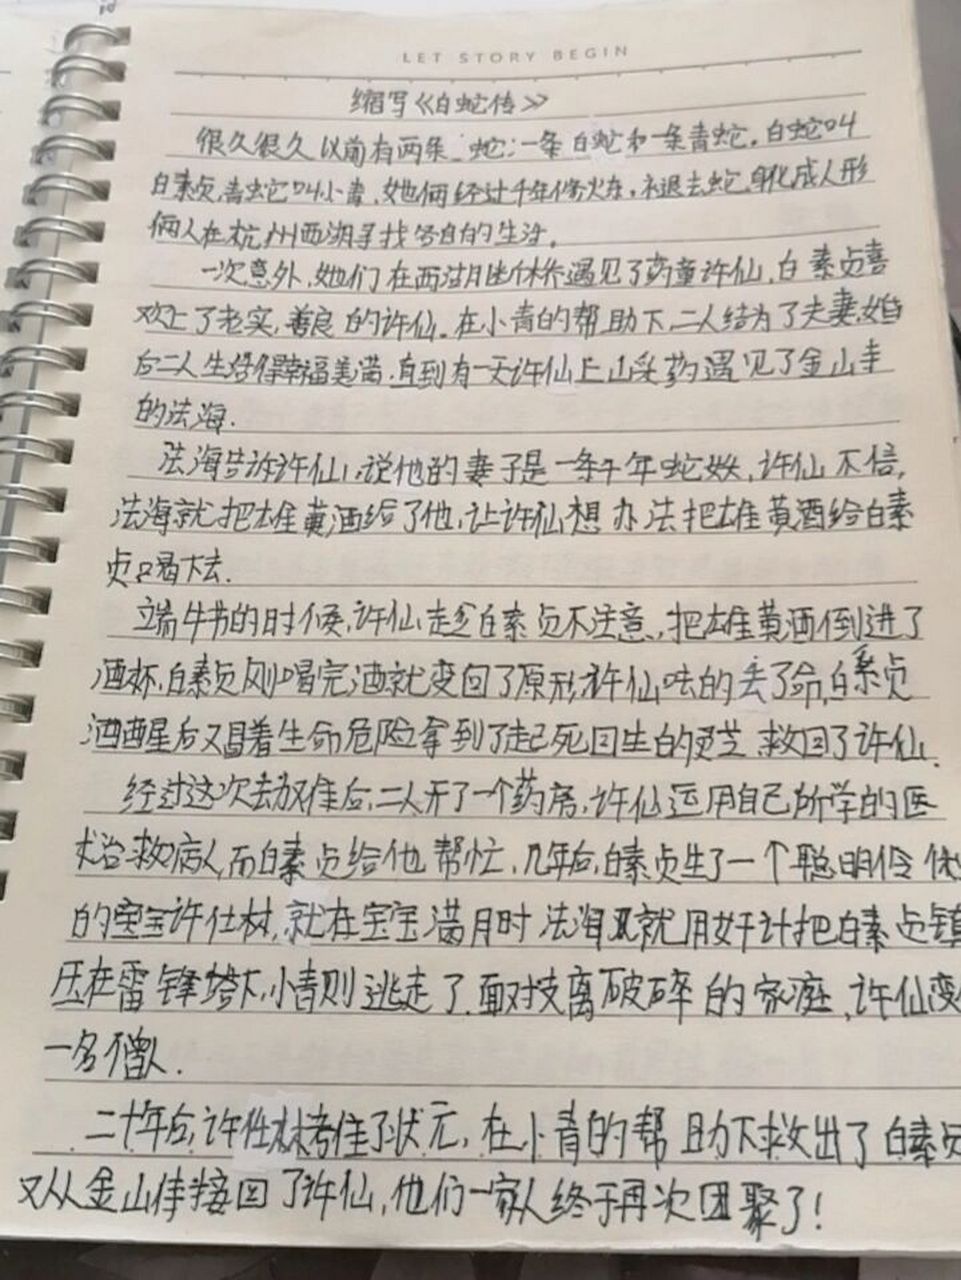 LET STORY BEGIN
缩写《白蛇传》
很久很久以前有两条蛇:一条白蛇和一条青蛇,白蛇叫
白素贞,青蛇叫小青,她俩经过千年修火东,衣退去蛇身化成人形
俩人在杭州西湖寻找各自的生活。
一次意外,她们在西湖用出休作遇见了药童许仙,白素贞喜
欢上了老实,善良的许仙.在小青的帮助下,二人结为了夫妻,婚
后二人生活得幸福美满.直到有一天许仙上山采药遇见了金山寺
的法海.
法海告诉许仙,说他的妻子是一条千年蛇妖,许仙不信,
法海就把雄黄酒给了他,让许仙想办法把雄黄酒给白素
贞喝下去.
端午节的时候,许仙趁白素贞不注意,把雄黄酒倒进了
酒杯,白素贞刚喝完酒就变回了原形,许仙吓的丢了命,白素贞
酒醒后又冒着生命危险拿到了起死回生的灵芝救回了许仙.
经过这次劫难后,二人开了一个药房,许仙运用自己所学的医
术治救病人,而白素贞给他帮忙.几年后,白素贞生了一个聪明伶
的宝宝许仕林,就在宝宝满月时法海又就用奸计把白素贞镇
压在雷锋塔下,小青则逃走了.面对支离破碎的家庭,许仙变
一名僧人.
二十年后,许仕林考住了状元,在小青的帮助下救出了白素贞
又从金山寺接回了许仙,他们一家人终于再次团聚了!